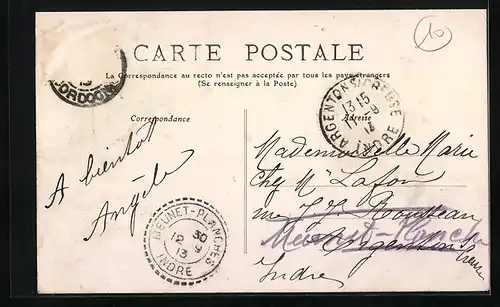 10
CARTE POSTALE
La Correspondance au recto n'est pas acceptée par tous les pays étrangers
(Se renseigner à la Poste)
Correspondance
Adresse
ARGENTON S/CREUSE
13 15
11 -9
13
INDRE
A bientot
Angèle
MEUNET-PLANCHES
12 30
13 9
INDRE
Mademoiselle Marie
Chez Mr Lafon
rue J J Rousseau
Meunet-Planches
Argenton s Creuse
Indre